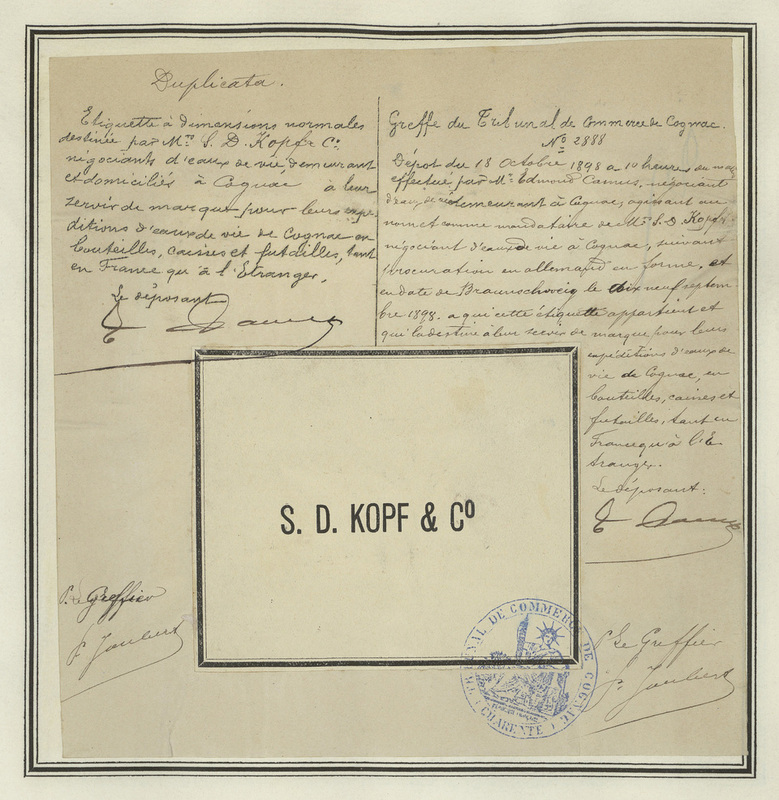 Duplicata.
Etiquette à dimensions normales
destinée par Mrs S. D. Kopf & Co.
négociants d'eaux de vie, demeurant
et domiciliés à Cognac à leur
servir de marque pour leurs expé-
ditions d'eaux de vie de Cognac en
bouteilles, caisses et futailles, tant
en France qu'à l'Etranger.
Le déposant
E Camus
P. le Greffier
P. Joubert
Greffe du Tribunal de Commerce de Cognac.
No 2888
Dépot du 18 Octobre 1898 à 10 heures du
effectué par Mr Edmond Camus, négociant
d'eaux de vie demeurant à Cognac, agissant au
nom et comme mandataire de Mrs S. D. Kopf &
négociant d'eaux de vie à Cognac, suivant
procuration en allemand en forme, et
en date de Braunschweig le dix neuf septem
bre 1898. a qui cette étiquette appartient et
qui la destine à leur servir de marque pour leurs
expéditions d'eaux de
vie de Cognac, en
bouteilles, caisses et
futailles, tant en
France qu'à l'E
tranger.
Le déposant:
E Camus
S. D. KOPF & Co
TRIBUNAL DE COMMERCE DE COGNAC
(CHARENTE)
P. Le Greffier
P. Joubert